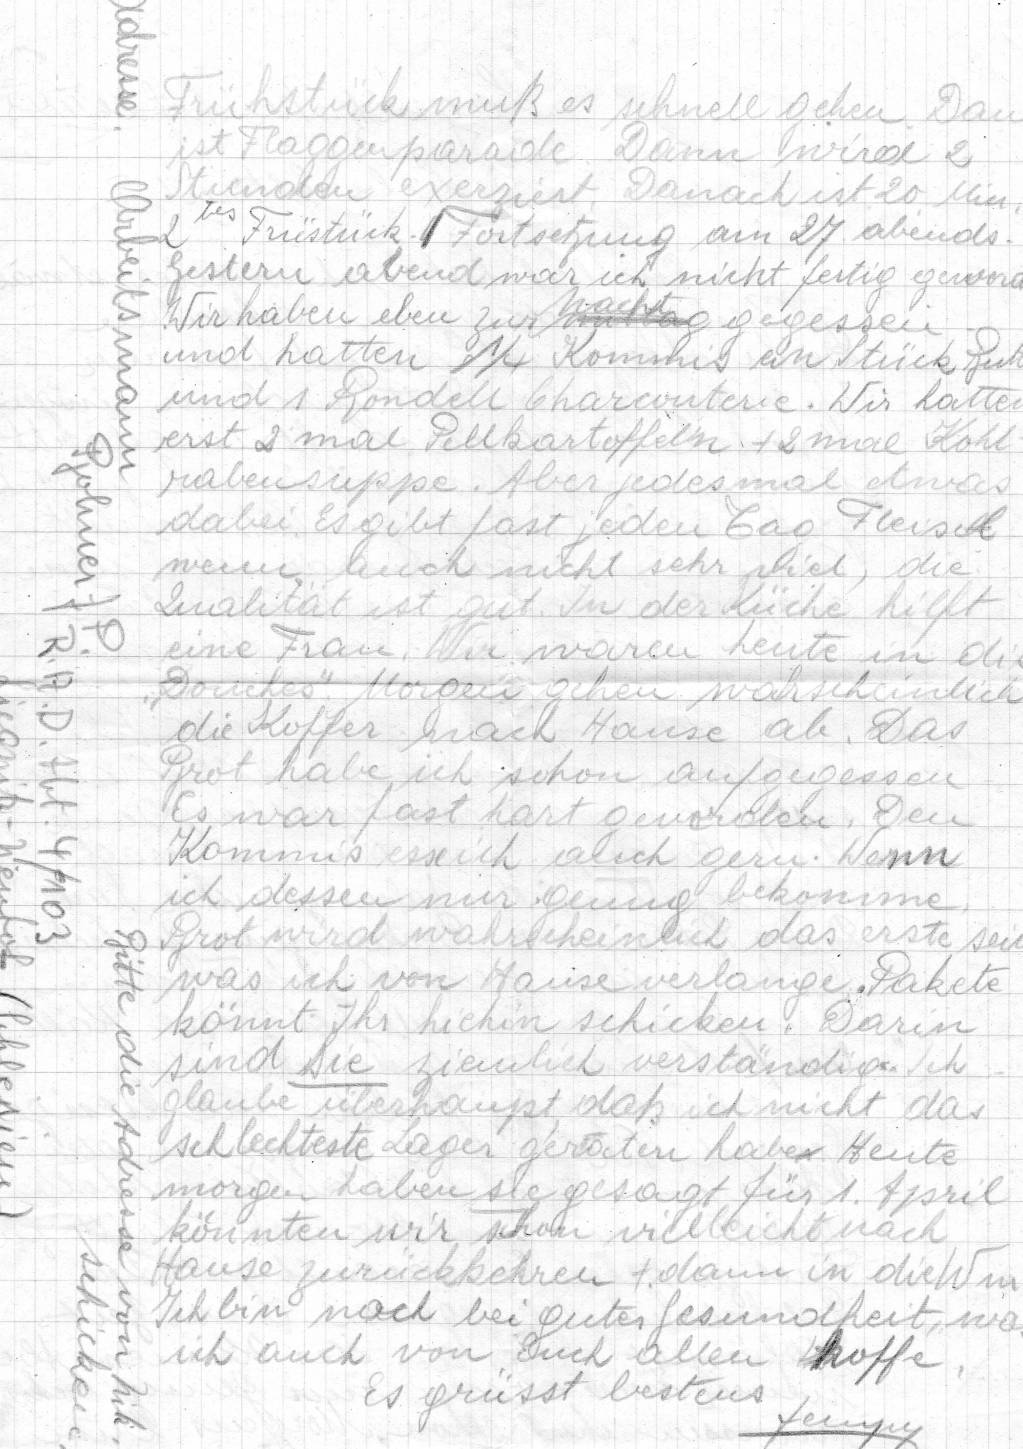 Frühstück muß es schnell gehen. Dan
ist Flaggenparade. Dann wird 2
Stunden exerziert. Danach ist 20 Min.
2tes Früstück. Fortsetzung am 27 abends.
Gestern abend war ich nicht fertig geword
Wir haben eben zur nacht gegessen
und hatten 1/4 Kommis ein Stück
und 1 Rondell Charcouterie. Wir hatten
erst 2 mal Pellkartoffeln + 2 mal Kohl
rabensuppe. Aber jedesmal etwas
dabei. Es gibt fast jeden Tag Fleisch
wenn auch nicht sehr viel, die
Qualität ist gut. In der Küche hilft
eine Frau. Wir waren heute in die
„Douches". Morgen gehen wahrscheinlich
die Koffer nach Hause ab. Das
Brot habe ich schon aufgegessen
Es war fast hart geworden. Den
Kommis esse ich auch gern. Wenn
ich dessen nur genug bekomme.
Brot wird wahrscheinlich das erste sein
was ich von Hause verlange. Pakete
könnt Ihr hiehin schicken. Darin
sind sie ziemlich verständig. Ich
glaube überhaupt daß ich nicht das
schlechteste Lager geraten habe. Heute
morgen haben sie gesagt für 1. April
könnten wir schon villeicht nach
Hause zurückkehren + dann in die
Ich bin noch bei guter Gesundheit, wa
ich auch von Euch allen hoffe.
Es grüsst bestens
Jempy
Adresse. Arbeitsmann
J.P.
R.A.D. Abt. 4/103
(Schlesien)
Bitte die Adresse von Nik.
schicken.